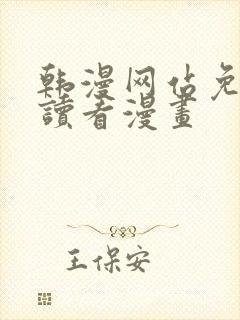 韩漫网佔免
讀看漫畫
王保安